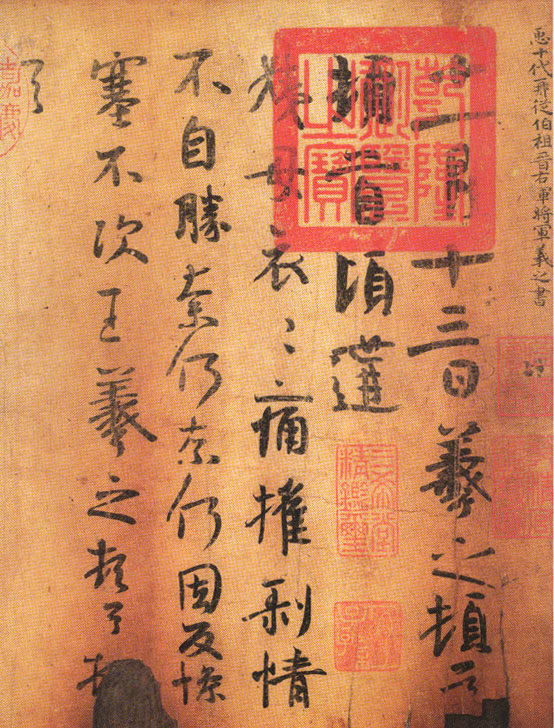 臣十代再從伯祖晉右軍將軍羲之書
十一月十三日羲之頓首
頓首頃遘
姨母哀〻痛摧剝情
不自勝奈何奈何因反慘
塞不次王羲之頓首頓
首
乾隆御覽之寶
三希堂精鑑璽
宜子孫
嘉慶